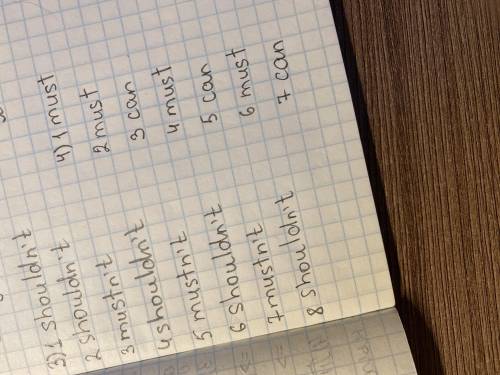 3) 1 shouldn't
2 shouldn't
3 mustn't
4 shouldn't
5 mustn't
6 shouldn't
7 mustn't
8 shouldn't
4) 1 must
2 must
3 can
4 must
5 can
6 must
7 can